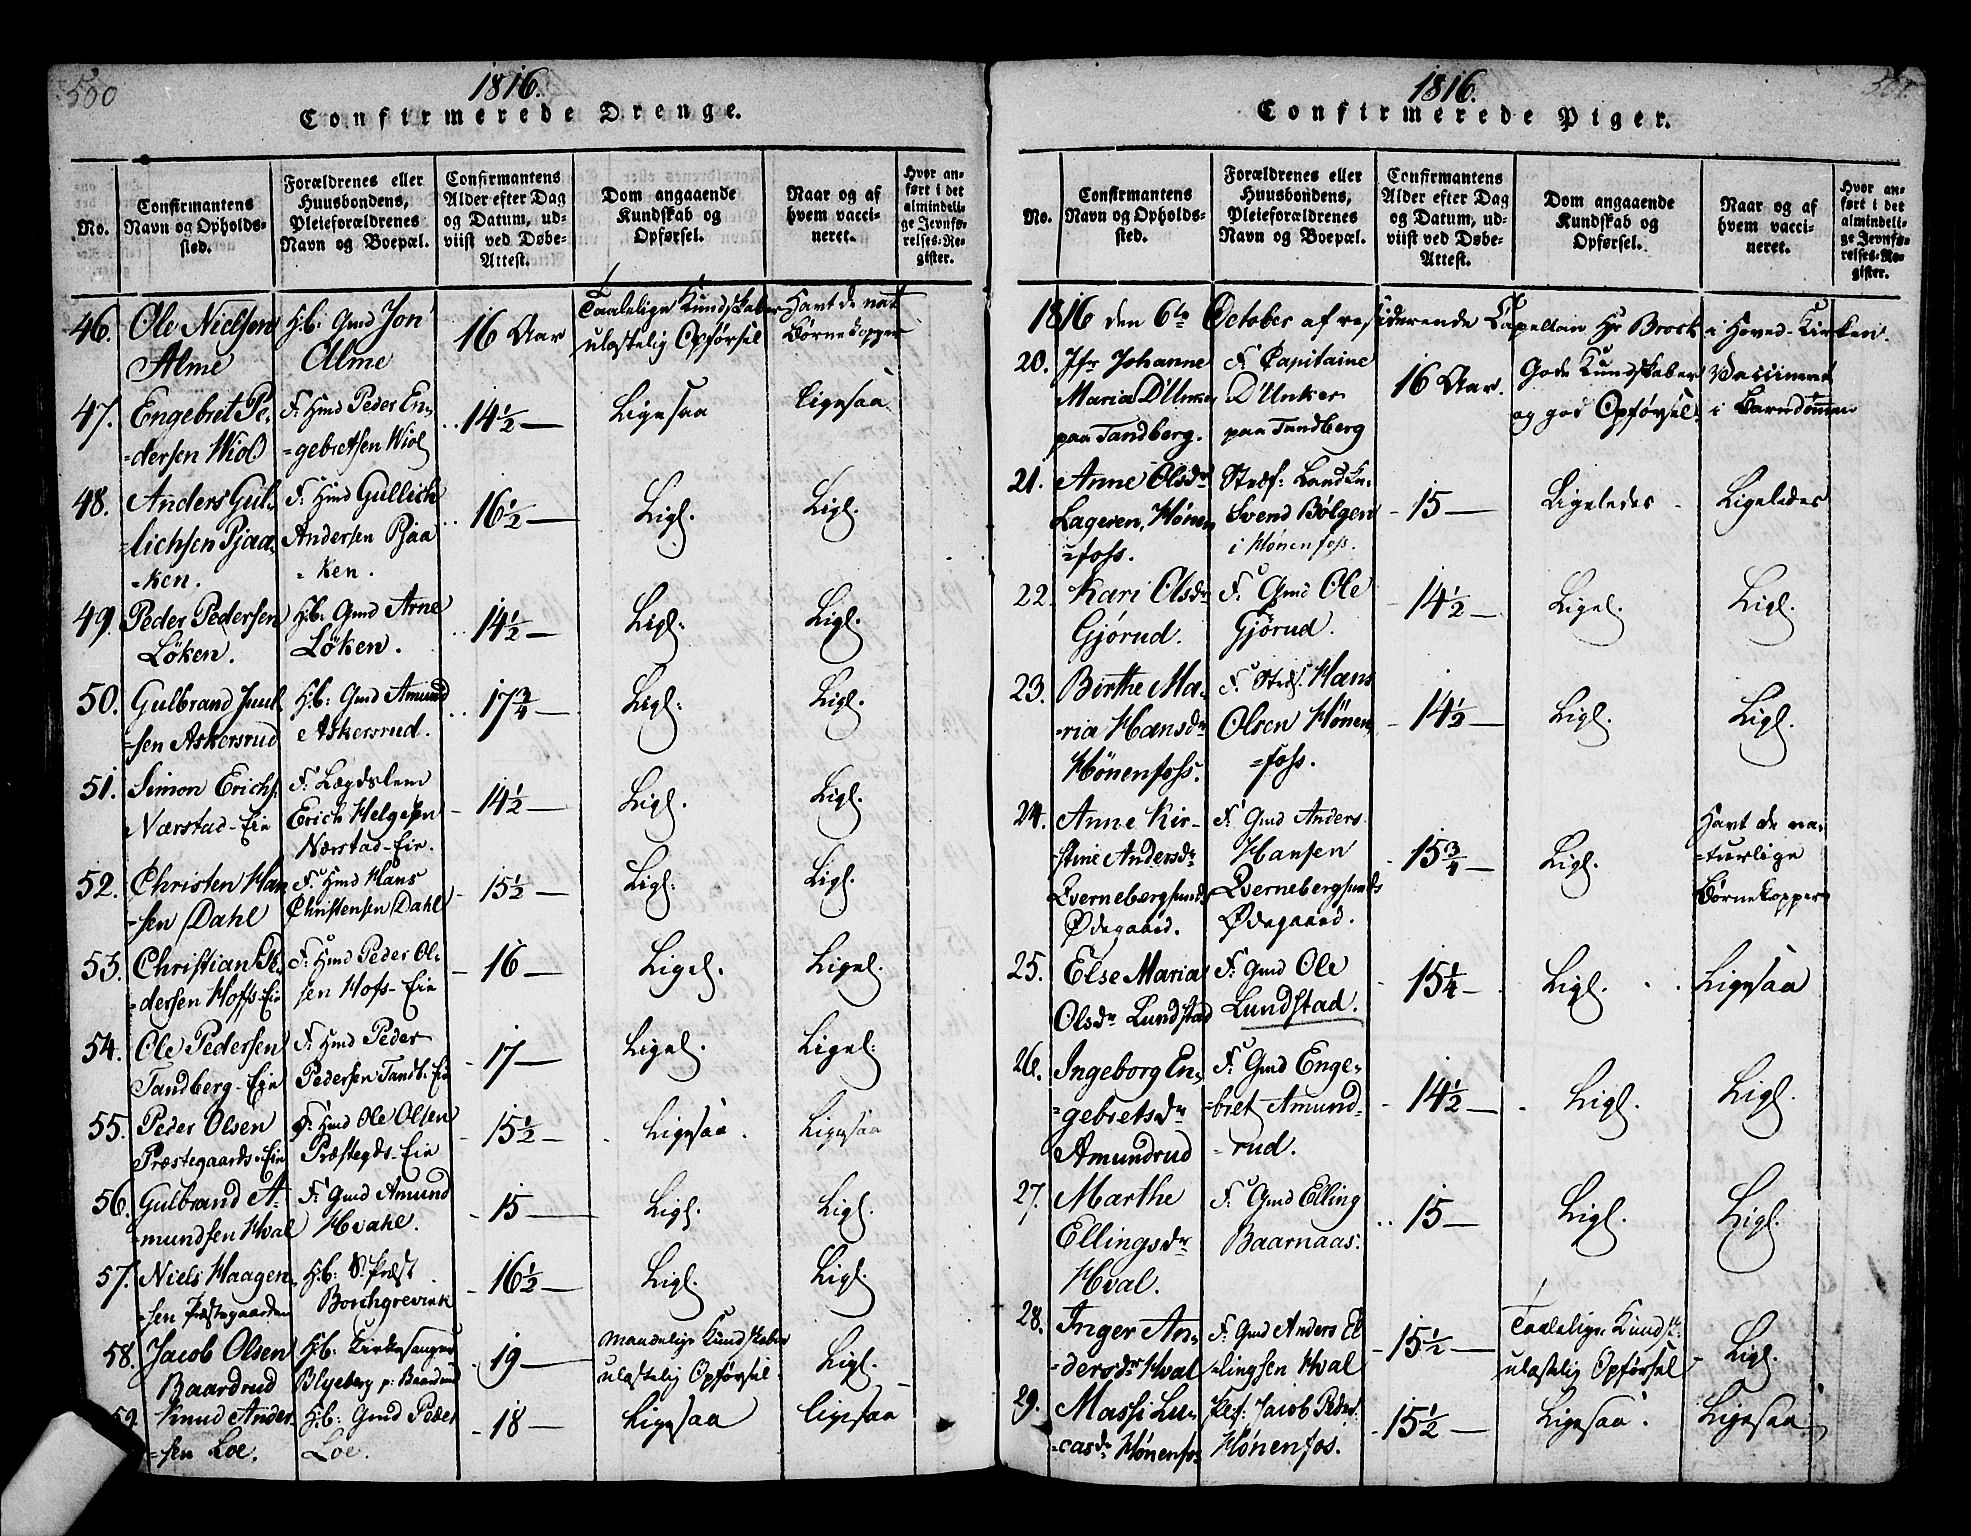 500
1816.
Confirmerede Drenge.
No.
Confirmantens
Navn og Opholds-
sted.
Forældrenes eller
Huusbondens,
Pleieforældrenes
Navn og Boepæl.
Confirmantens
Alder efter Dag
og Datum, ud-
viist ved Døbe-
Attest.
Dom angaaende
Kundskab og
Opførsel.
Naar og af
hvem vacci-
neret.
Hvor an-
ført i det
almindeli-
ge Jevnfø-
relses-Re-
gister.
46. Ole Nielsen
Alme
H.b: Gmd Jon
Alme
16 Aar
Taalelige Kundskaber
ulastelig Opførsel
Havt de nat
Børnekopper
47. Engebret Pe-
=dersen Wiol
F. Hmd Peder En-
=gebretsen Wiol
14 1/2
Ligesaa
Ligesaa
48. Anders Gul-
=lichsen Pjaa-
=ken.
F. Hmd Gullich
Andersen Pjaa
=ken.
16 1/2
Ligl.
Ligl.
49. Peder Pedersen
Löken.
H.b: Gmd Arne
Löken.
14 1/2
Ligl:
Ligl.
50. Gulbrand Juul
=sen Askersrud
H.b: Gmd Amund
Askersrud.
17 3/4
Ligl:
Ligl.
51. Simon Erichs:
Nærstad-Eie
F. Lægdslem
Erich Helgesen
Nærstad-Eie.
14 1/2
Ligl.
Ligl.
52. Christen Han
=sen Dahl
F. Hmd Hans
Christensen Dahl
15 1/2
Ligl:
Ligl.
53. Christian Pe-
=dersen Hofs-Eie
F. Hmd Peder Ol-
sen Hofs-Eie
16
Ligel.
Ligel.
54. Ole Pedersen
Tandberg-Eie
F. Hmd Peder
Pedersen Tandb: Eie
17
Ligel.
Ligel:
55. Peder Olsen
Præstegaards-Eie
F. Hmd Ole Olsen
Præstegds-Eie
15 1/2
Ligesaa.
Ligesaa
56. Gulbrand A-
=mundsen Hval
F. Gmd Amund
Hvahl.
15
Ligl.
Ligl.
57. Niels Haagen
=sen Præstegaarden
H.b: S. Præst
Borchgrevink
16 1/2
Ligl.
Ligl.
58. Jacob Olsen
Baardrud
H.b: Kirkesanger
Blyeberg p: Baardrud
19
Maadelige Kundskaber
ulastelig Opførsel.
Ligl.
59. Knud Ander
=sen Loe.
H.b: Gmd Peder
Loe.
18
Ligesaa
Ligesaa
501.
1816.
Confirmerede Piger.
No.
Confirmantens
Navn og Opholds-
sted.
Forældrenes eller
Huusbondens,
Pleieforældrenes
Navn og Boepæl.
Confirmantens
Alder efter Dag
og Datum, ud-
viist ved Døbe-
Attest.
Dom angaaende
Kundskab og
Opførsel.
Naar og af
hvem vacci-
neret.
Hvor an-
ført i det
almindeli-
ge Jevnfø-
relses-Re-
gister.
1816 den 6te October af residerende Capellan Hr Brock i Hoved-Kirken.
20. Jfr Johanne
Maria D'Unker
paa Tandberg.
F. Capitaine
D'Unker
paa Tandberg
16 Aar.
Gode Kundskaber
og god Opførsel.
Vaccineret
i Barndommen
21. Anne Olsdr
Lageren, Hönen
=foss.
Svend Bölgen
i Hönenfoss.
15
Ligeledes
Ligeledes
22. Kari Olsdr
Gjörud.
F. Gmd Ole
Gjörud.
14 1/2
Ligel.
Ligl.
23. Birthe Ma-
=ria Hansdr
Hönenfoss.
F. Stræs. Hans
Olsen Hönen
=foss.
14 1/2
Ligl.
Ligl.
24. Anne Kir-
=stine Andersdr
Qvernebergsunds
Ødegaard.
F. Gmd Anders
Hansen
Qvernebergsunds
Ødegaard.
15 3/4
Ligl.
Havt de na-
=turlige
Børnekopper
25. Else Maria
Olsdr Lundstad
F. Gmd Ole
Lundstad.
15 1/4
Ligl.
Ligesaa
26. Ingeborg En-
=gebretsdr
Amundrud
F. Gmd Enge-
=bret Amund-
=rud.
14 1/2
Ligl.
Ligl.
27. Marthe
Ellingsdr
Hval.
F. Gmd Elling
Baarnaas.
15
Ligl.
Ligl.
28. Inger An-
=dersdr Hval
F. Gmd Anders El
=lingsen Hval
15 1/2
Taalelige Kundsk:
ulastelig Opførsel
Ligl.
29. Massi Lu-
=casdr Hönenfos
Plef: Jacob Peders
Hönenfos.
15 1/2
Ligesaa.
Ligesaa